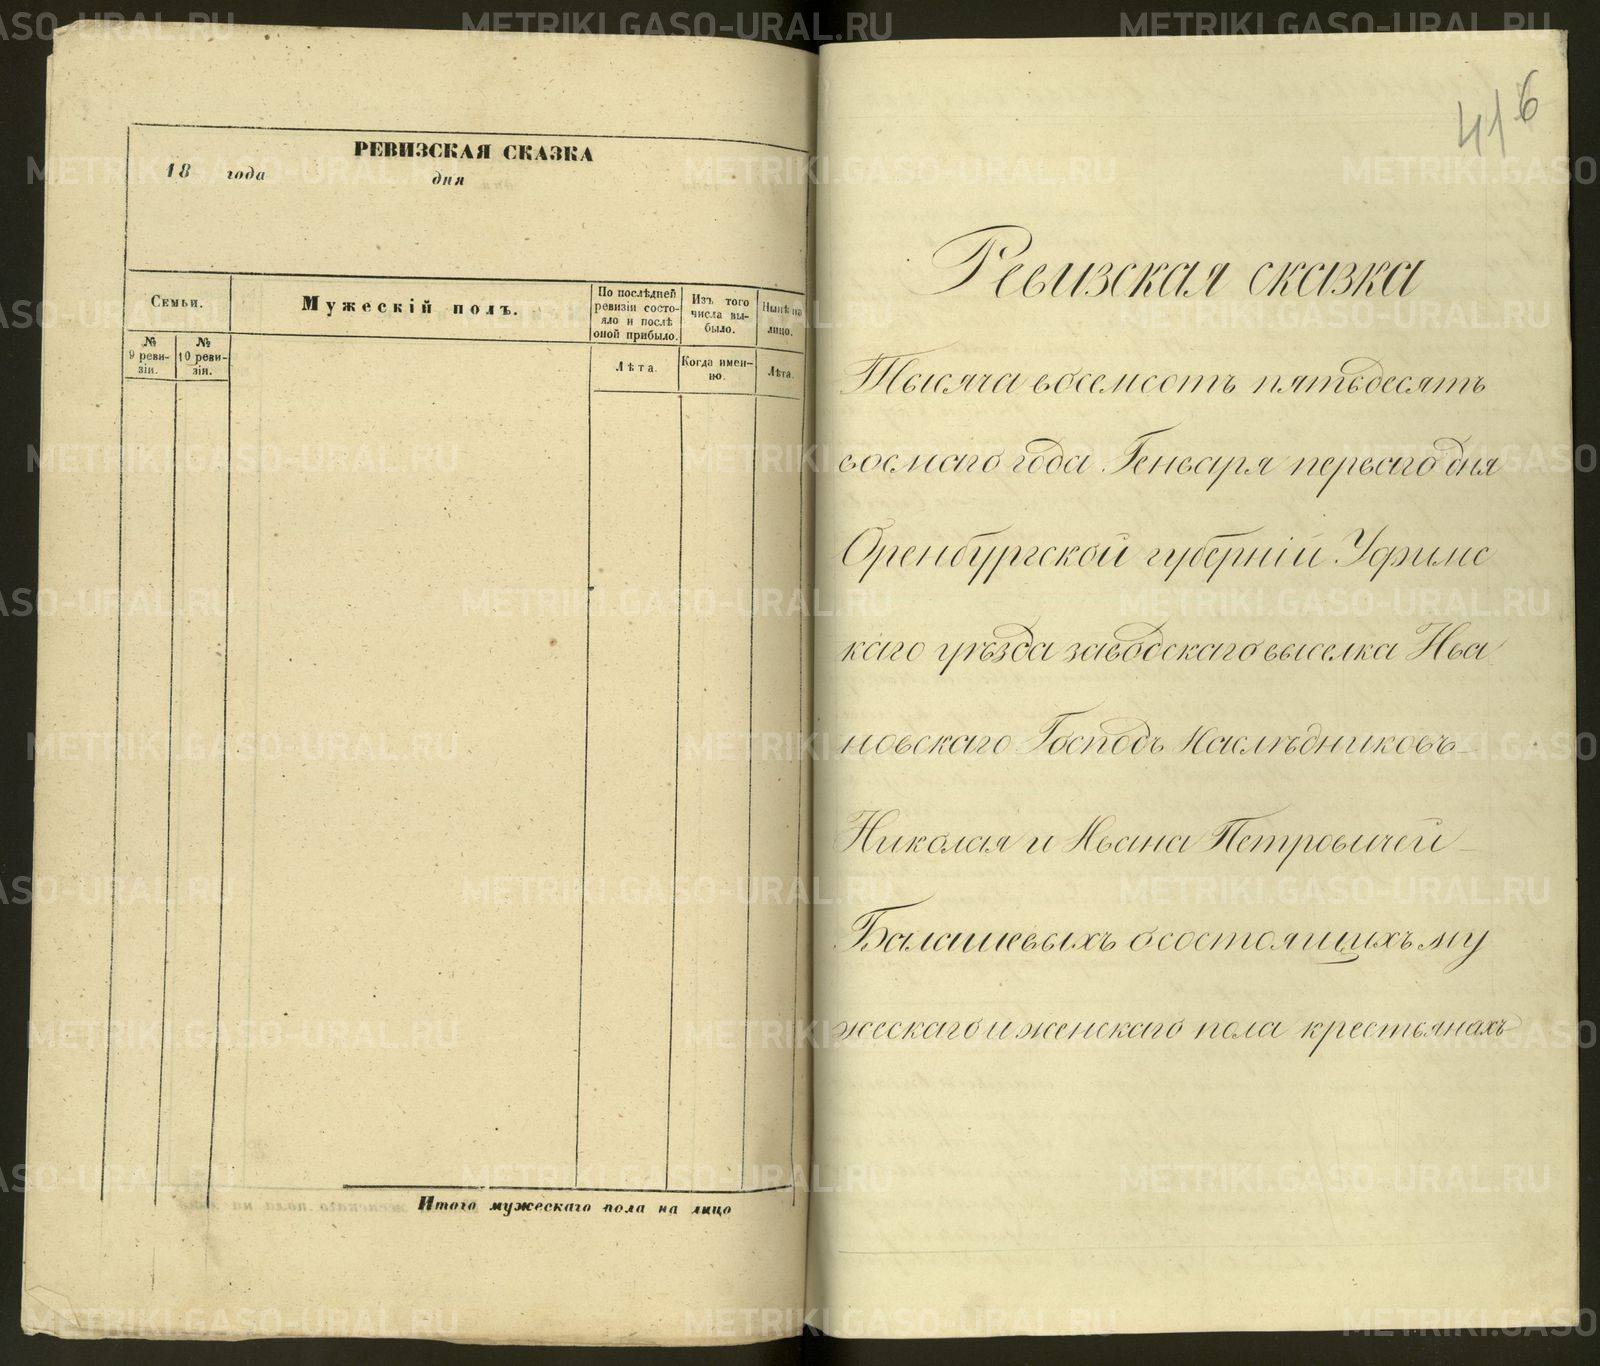 РЕВИЗСКАЯ СКАЗКА
18 года дня
Семьи.
Мужескій полъ.
По послѣдней
ревизіи состо-
яло и послѣ
оной прибыло.
Изъ того
числа вы-
было.
Нынѣ на
лицо.
№
9 реви-
зіи.
№
10 реви-
зіи.
Лѣта.
Когда имен-
но.
Лѣта.
Итого мужескаго пола на лицо
416
Ревизская сказка
Тысяча восемсотъ пятьдесятъ
восмаго года Генваря перваго дня
Оренбургской губерніи Уфимс
каго уѣзда заводскаго выселка Ива
новскаго Господъ Наслѣдниковъ
Николая и Ивана Петровичей
Балашевыхъ о состоящихъ му
жескаго и женскаго пола крестьянахъ
METRIKI.GASO-URAL.RU